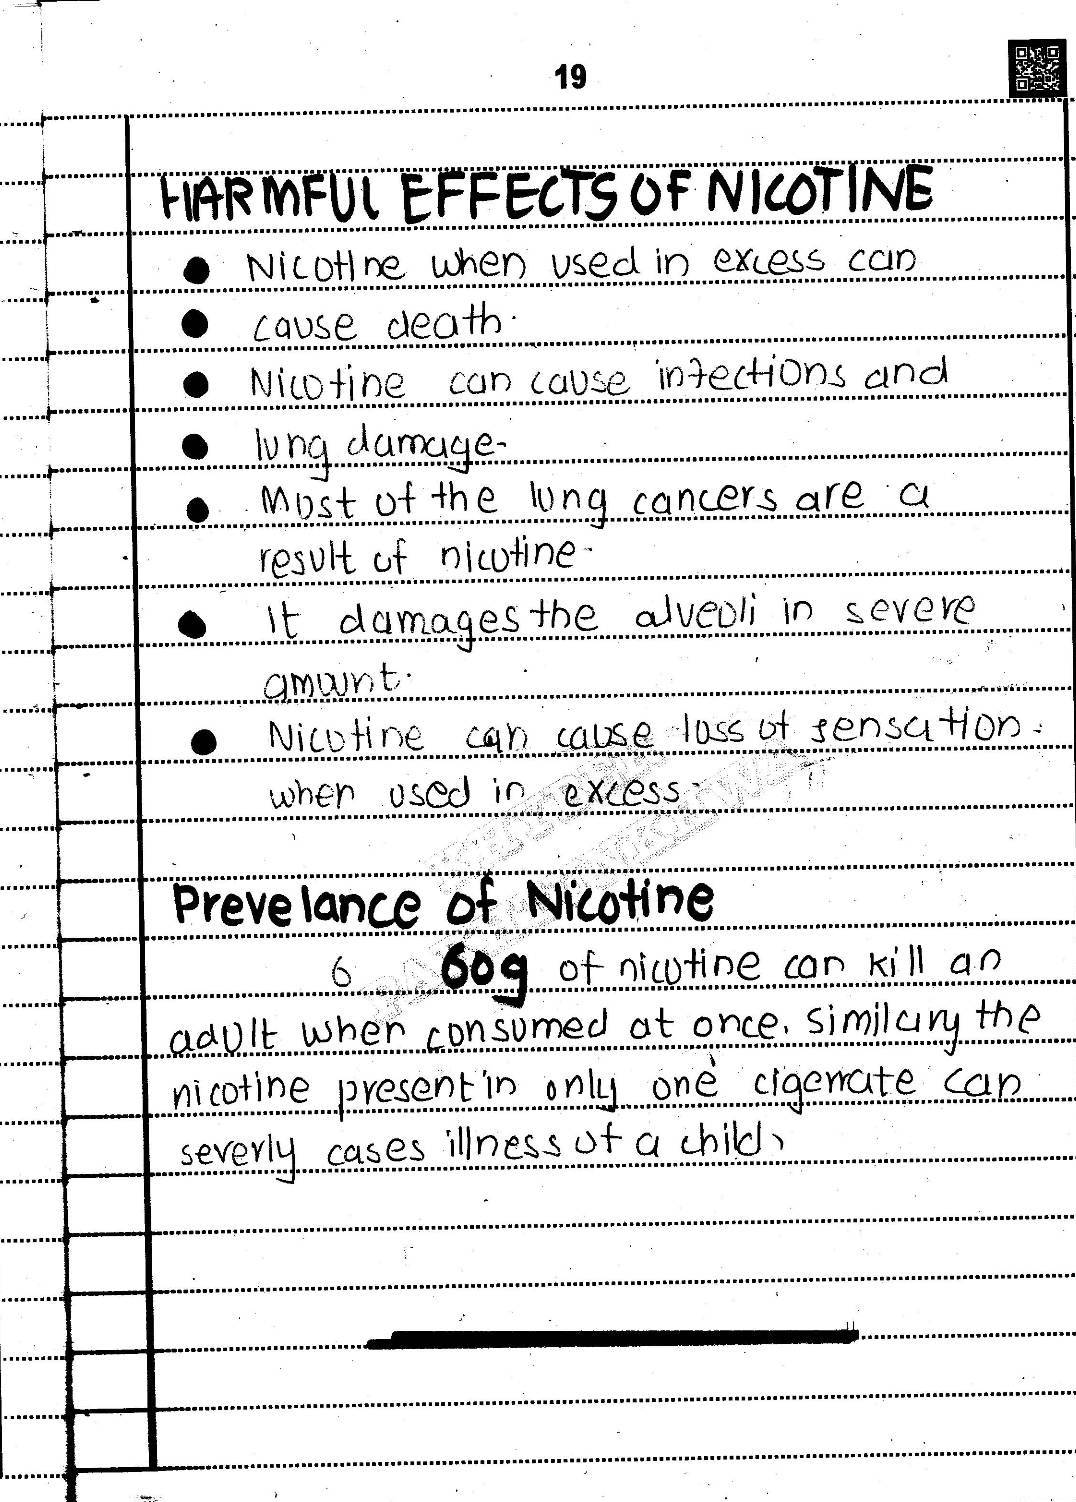 19
HARMFUL EFFECTS OF NICOTINE
● Nicotine when used in excess can
● cause death.
● Nicotine can cause infections and
● lung damage-
● Most of the lung cancers are a
result of nicotine.
● It damages the alveoli in severe
amount.
● Nicotine can cause loss of sensation.
when used in excess.
Prevelance of Nicotine
6 60g of nicotine can kill an
adult when consumed at once. Similary the
nicotine present in only one cigerrate can
severly cases illness of a child,